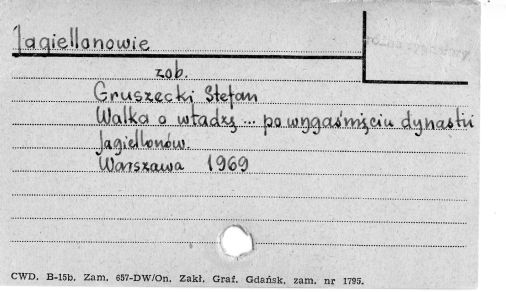 Jagiellonowie
zob.
Gruszecki Stefan
Walka o władzę ... po wygaśnięciu dynastii
Jagiellonów
Warszawa 1969
CWD. B-15b. Zam. 657-DW/On. Zakł. Graf. Gdańsk, zam. nr 1795.